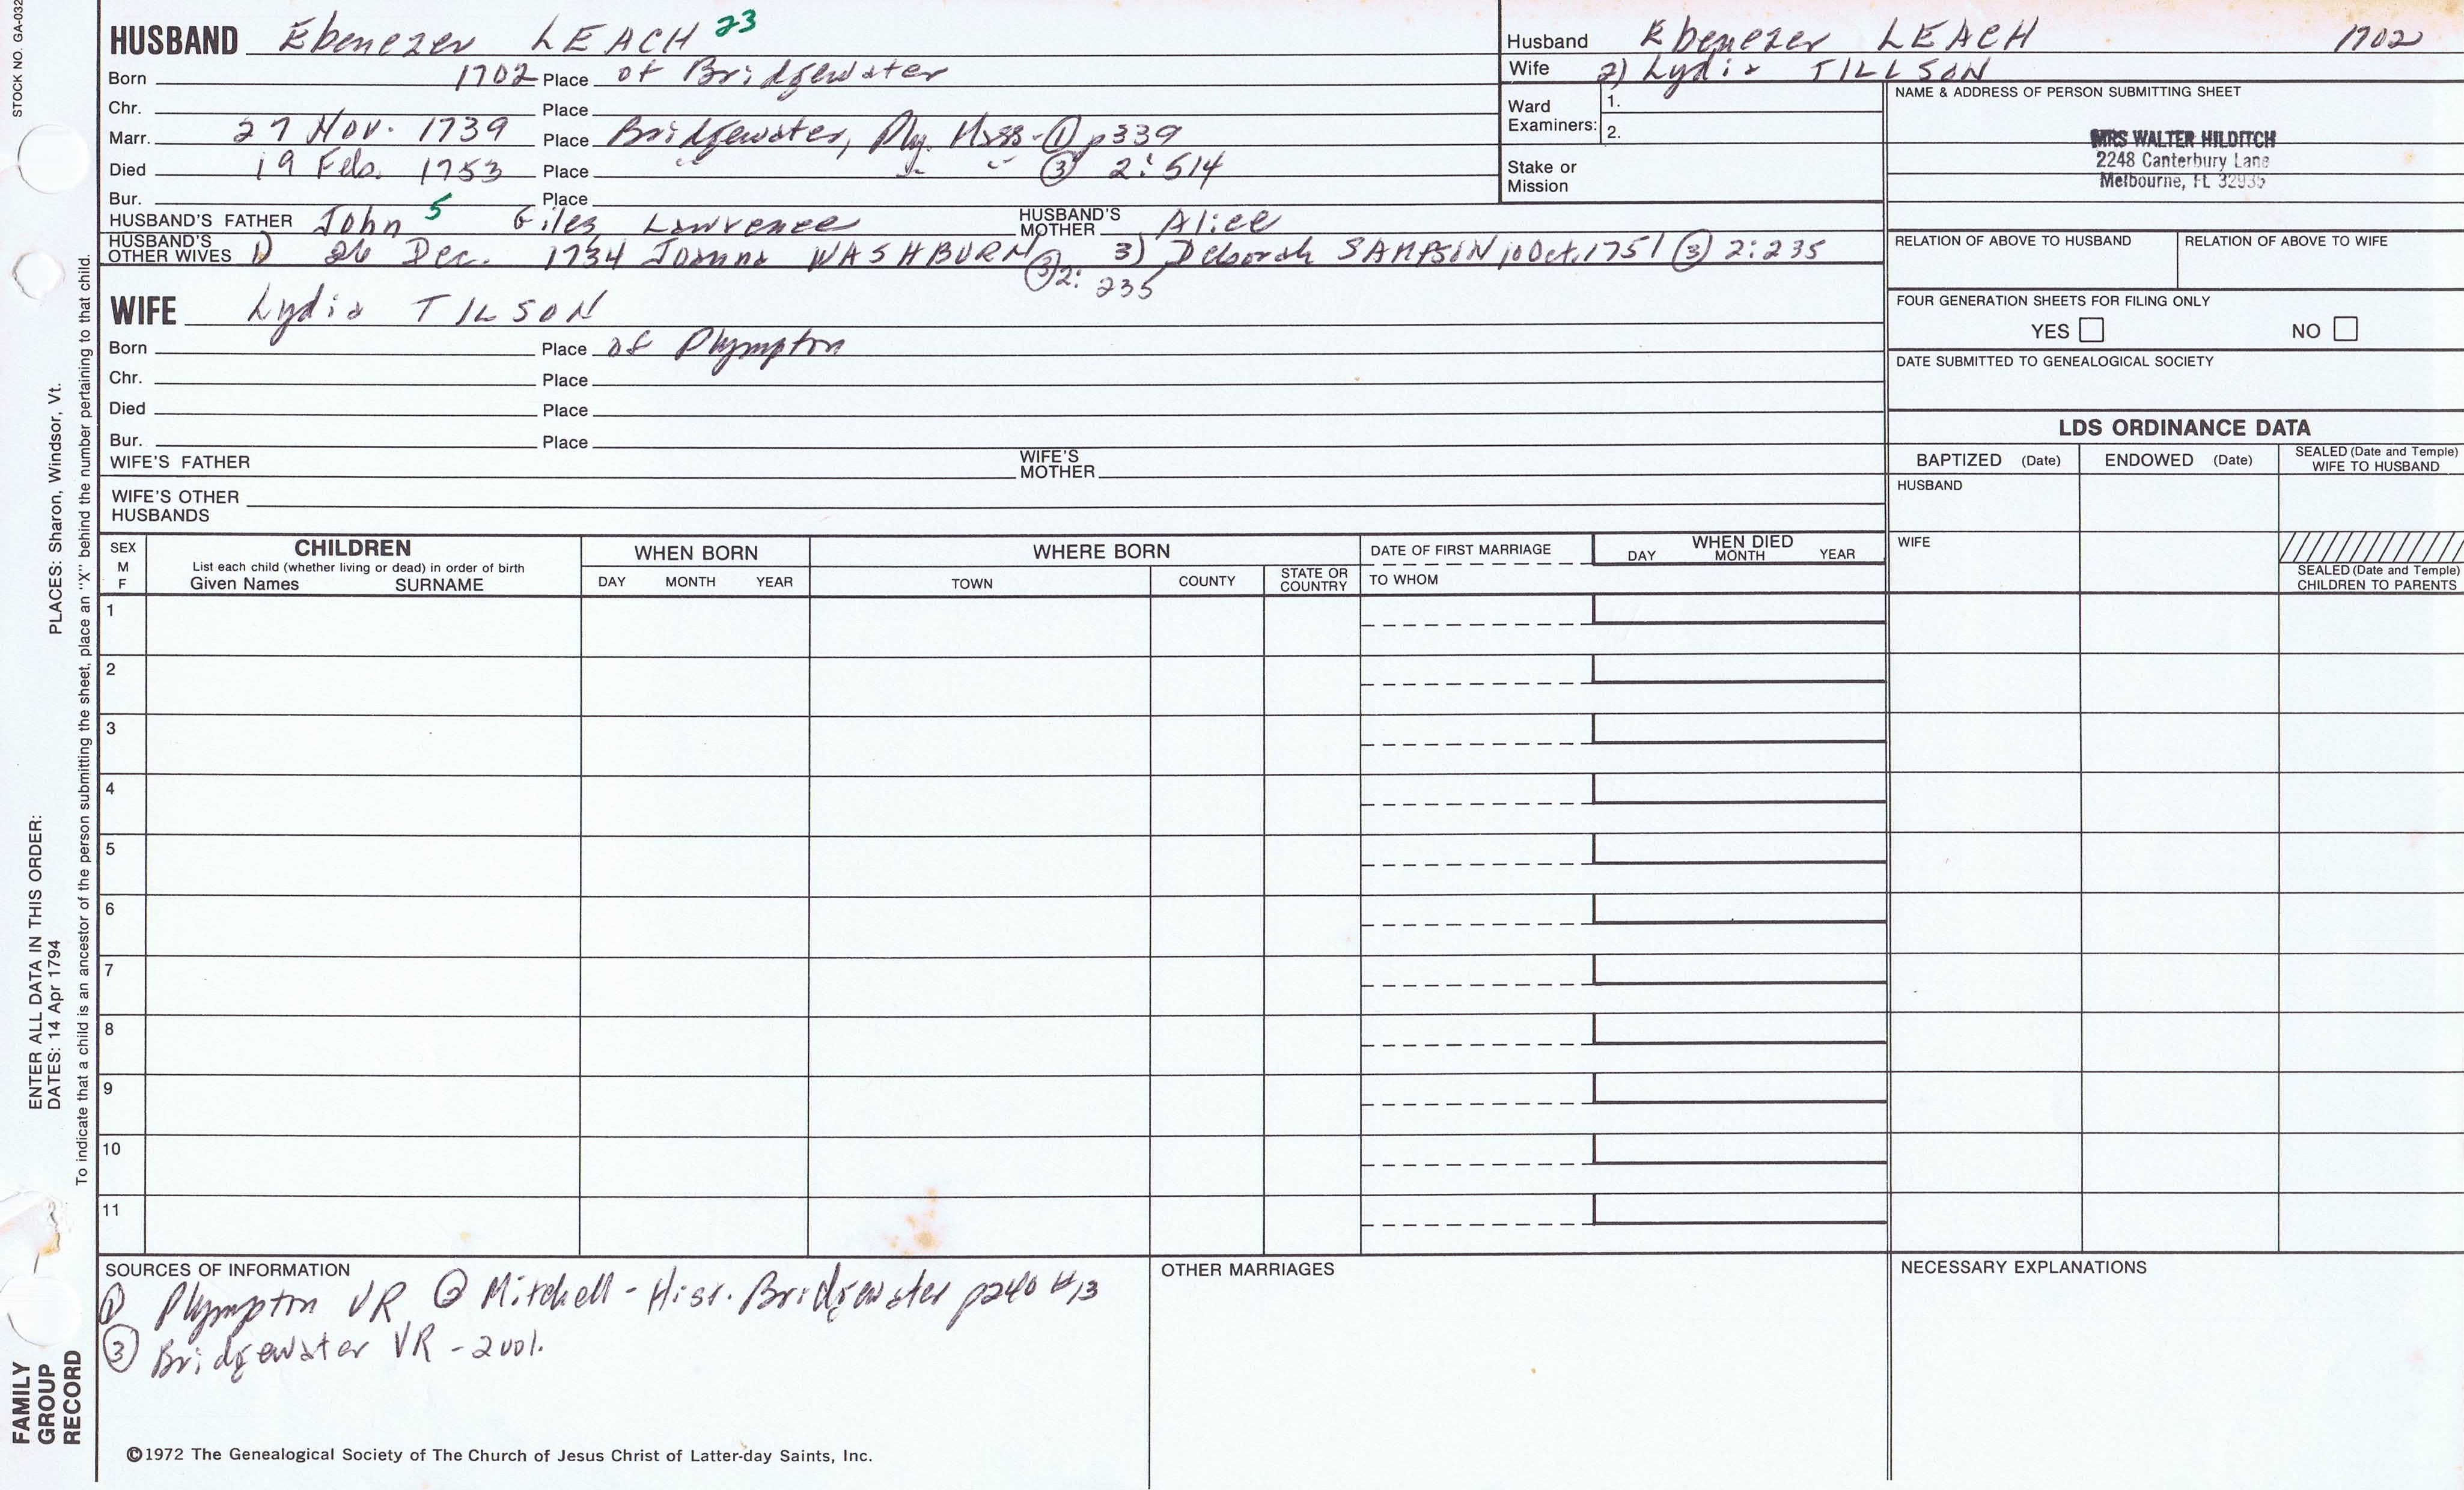 STOCK NO. GA-032
HUSBAND Ebenezer LEACH 23
Born 1702 Place of Bridgewater
Chr. Place
Marr. 27 Nov. 1739 Place Bridgewater, Ply. Mass - ① p339
Died 19 Feb. 1753 Place " " " ③ 2:514
Bur. Place
HUSBAND'S FATHER John 5 Giles Lawrence HUSBAND'S MOTHER Alice
HUSBAND'S OTHER WIVES 1) 26 Dec. 1734 Joanna WASHBURN ③ 2: 235 3) Deborah SAMPSON 10 Oct. 1751 ③ 2:235
WIFE Lydia TILSON
Born Place of Plympton
Chr. Place
Died Place
Bur. Place
WIFE'S FATHER WIFE'S MOTHER
WIFE'S OTHER HUSBANDS
Husband Ebenezer LEACH 1702
Wife 2) Lydia TILLSON
Ward Examiners: 1.
2.
Stake or Mission
NAME & ADDRESS OF PERSON SUBMITTING SHEET
MRS WALTER HILDITCH
2248 Canterbury Lane
Melbourne, FL 32935
RELATION OF ABOVE TO HUSBAND RELATION OF ABOVE TO WIFE
FOUR GENERATION SHEETS FOR FILING ONLY
YES NO
DATE SUBMITTED TO GENEALOGICAL SOCIETY
LDS ORDINANCE DATA
BAPTIZED (Date) ENDOWED (Date) SEALED (Date and Temple) WIFE TO HUSBAND
HUSBAND
WIFE
SEALED (Date and Temple) CHILDREN TO PARENTS
SEX M F
CHILDREN
List each child (whether living or dead) in order of birth
Given Names SURNAME
WHEN BORN
DAY MONTH YEAR
WHERE BORN
TOWN COUNTY STATE OR COUNTRY
DATE OF FIRST MARRIAGE
TO WHOM
WHEN DIED
DAY MONTH YEAR
1
2
3
4
5
6
7
8
9
10
11
SOURCES OF INFORMATION
① Plympton VR ② Mitchell - Hist. Bridgewater p240 #13
③ Bridgewater VR - 2 vol.
OTHER MARRIAGES
NECESSARY EXPLANATIONS
©1972 The Genealogical Society of The Church of Jesus Christ of Latter-day Saints, Inc.
FAMILY
GROUP
RECORD
ENTER ALL DATA IN THIS ORDER:
DATES: 14 Apr 1794 PLACES: Sharon, Windsor, Vt.
To indicate that a child is an ancestor of the person submitting the sheet, place an "X" behind the number pertaining to that child.